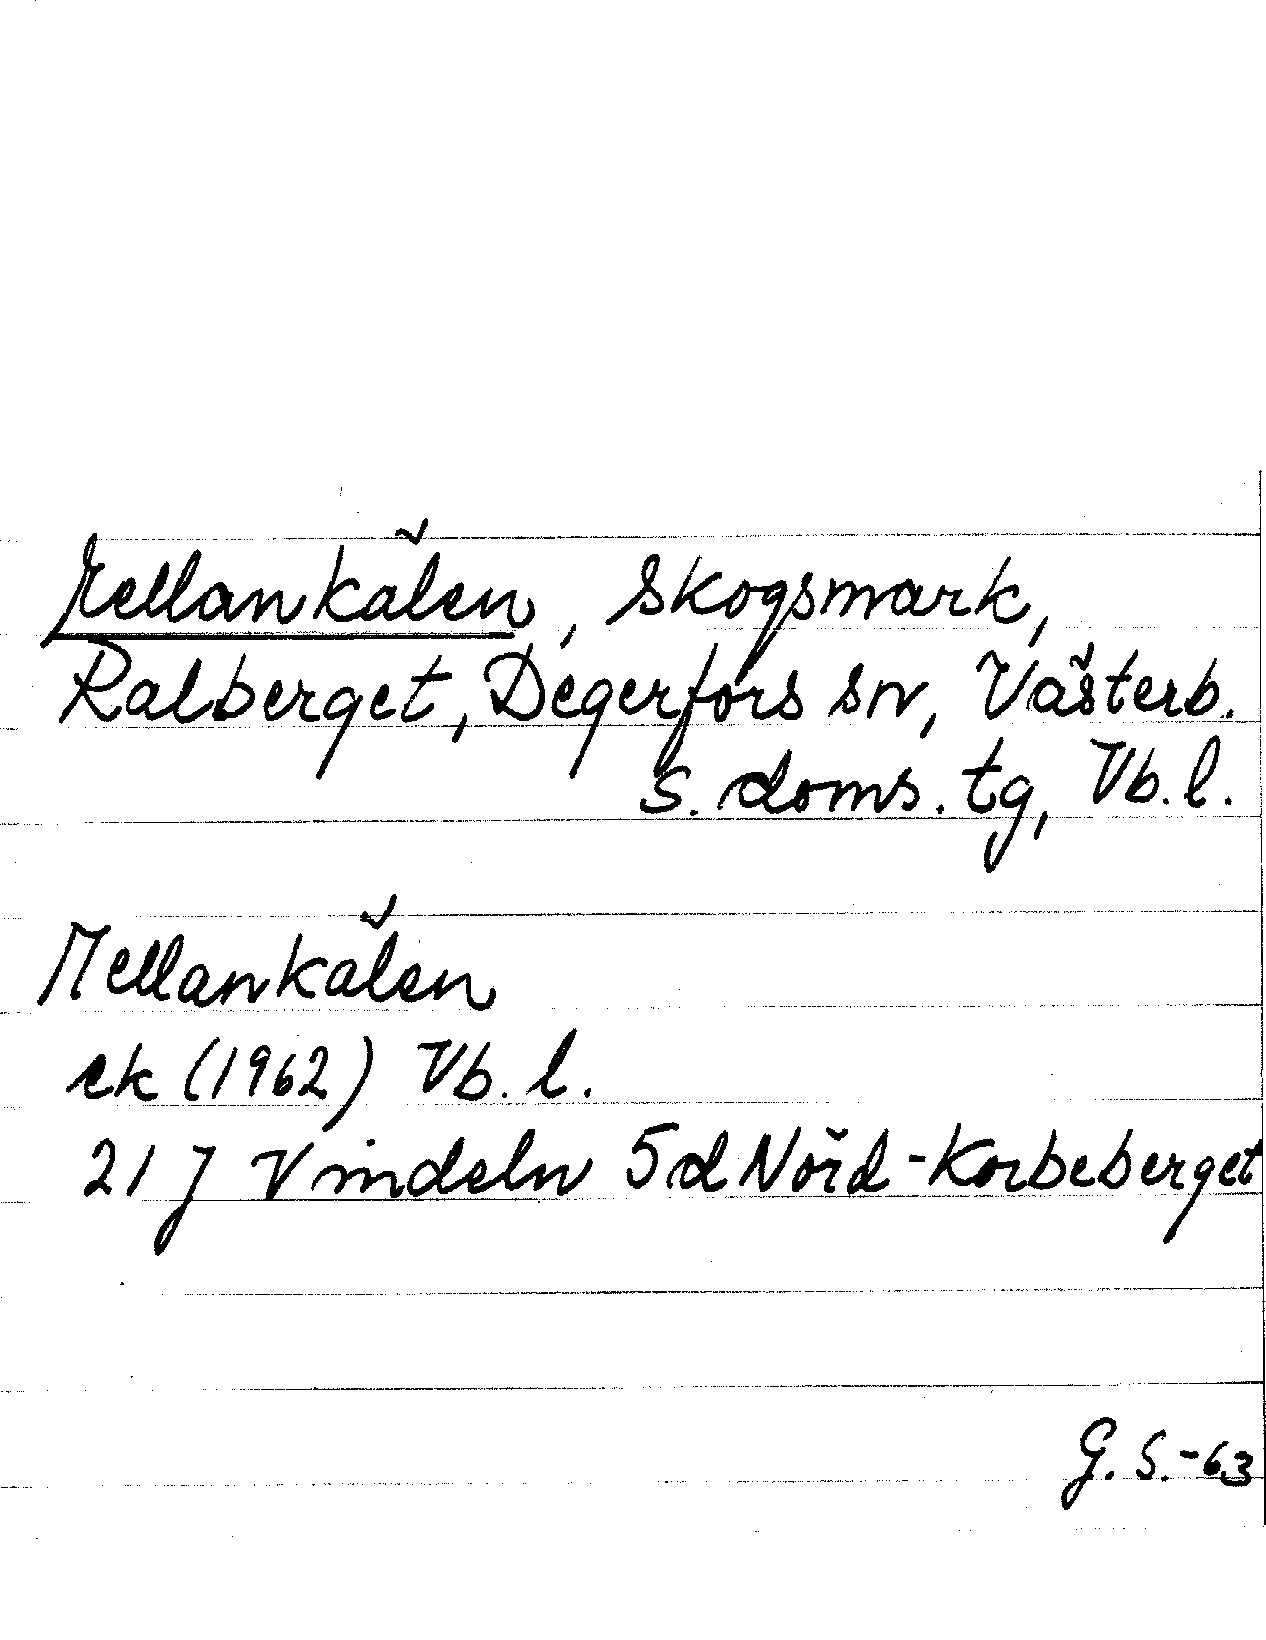 Mellankälen, skogsmark,
Ralberget, Degerfors sn, Västerb.
s. doms. tg, Vb. l.
Mellankälen
ek (1962) Vb. l.
21 J Vindeln 5d Nörd-Korbeberget
G. S.-63